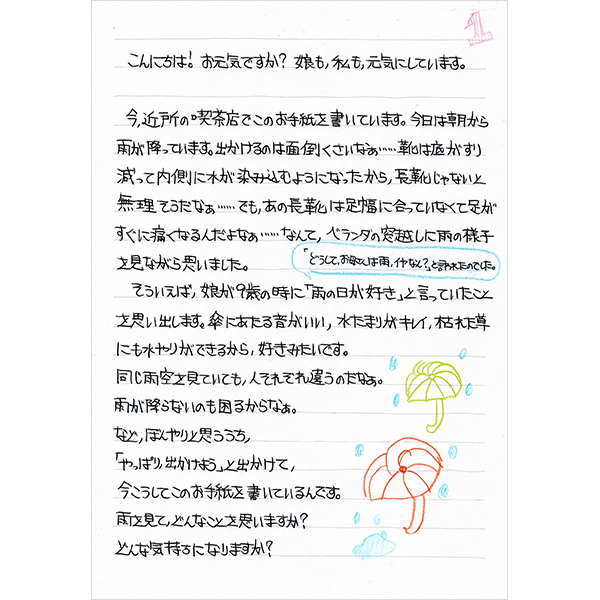 1
こんにちは! お元気ですか? 娘も,私も,元気にしています。
今,近所の喫茶店でこのお手紙を書いています。今日は朝から
雨が降っています。出かけるのは面倒くさいなぁ……靴は底がすり
減って内側に水が染み込むようになったから,長靴じゃないと
無理そうだなぁ……でも,あの長靴は足幅に合っていなくて足が
すぐに痛くなるんだよなぁ……なんて,ベランダの窓越しに雨の様子
を見ながら思いました。
「どうして,お母さんは雨,イヤなん?」と言われたのでした。
そういえば,娘が9歳の時に「雨の日が好き」と言っていたこと
を思い出します。傘にあたる音がいい,水たまりがキレイ,枯れた草
にも水やりができるから,好きみたいです。
同じ雨空を見ていても,人それぞれ違うのだなぁ。
雨が降らないのも困るからなぁ。
など,ぼんやりと思ううち,
「やっぱり,出かけよう」と出かけて,
今こうしてこのお手紙を書いているんです。
雨を見て,どんなことを思いますか?
どんな気持ちになりますか?